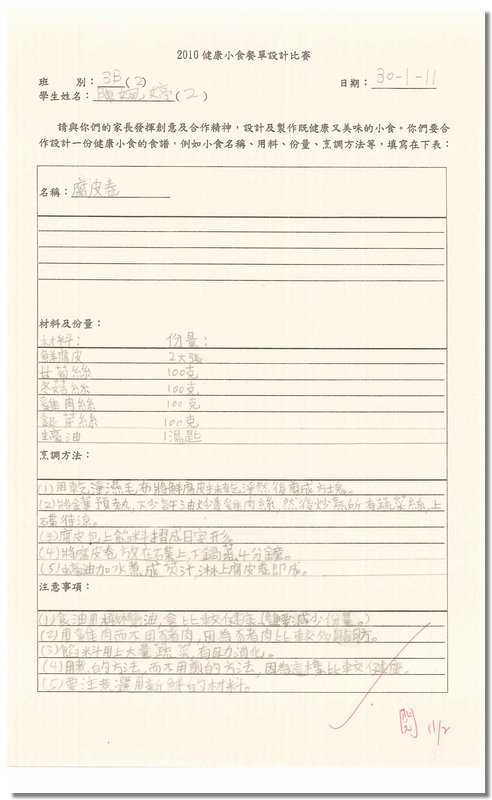 2010 健康小食餐單設計比賽
班　　別：3B(2)　日期：30-1-11
學生姓名：陳婉婷(2)
請與你們的家長發揮創意及合作精神，設計及製作既健康又美味的小食。你們要合
作設計一份健康小食的食譜，例如小食名稱、用料、份量、烹調方法等，填寫在下表：
名稱：腐皮卷
材料及份量：
材料：　份量：
鮮腐皮　2大張
甘荀絲　100克
冬菇絲　100克
雞肉絲　100克
銀芽絲　100克
蠔油　1湯匙
烹調方法：
(1)用乾淨濕毛布將鮮腐皮抹乾淨然後剪成方塊。
(2)將鑊預熱,下少許油炒香雞肉絲,然後炒熟所有蔬菜絲,上
碟待涼。
(3)腐皮包上餡料摺成日字形。
(4)將腐皮卷放在碟上,下鍋蒸4分鐘。
(5)蠔油加水煮成芡汁,淋上腐皮卷即成。
注意事項：
(1)食油用橄欖油,會比較健康。(鹽要減少份量。)
(2)用雞肉而不用豬肉,因為豬肉比較多脂肪。
(3)餡料用上大量蔬菜,有助消化。
(4)用煮的方法,而不用煎的方法,因為這樣比較健康。
(5)要注意選用新鮮的材料。
閱 11/2